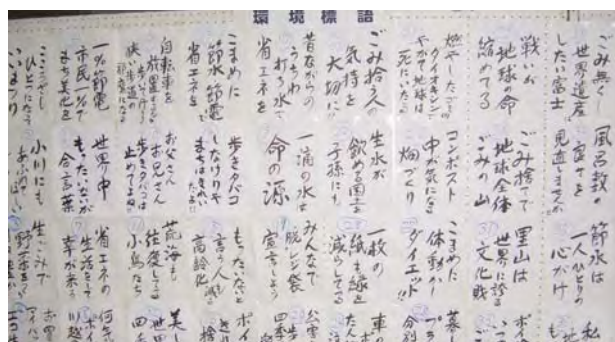 環境標語
ごみ無くし
世界遺産に
したい富士
戦いが
地球の命
縮めてる
ダイオキシンで
やがて地球は
死にいたる
ごみ拾う人の
気持を
大切に
昔ながらの
うちわ
打ち水で
省エネを
こまめに
節水 節電
省エネを
自転車を
放置すると
狭い歩道の
一%節電
市民一%で
まち美化を
風呂敷の
良さを
見直しませんか
ごみ捨てて
地球全体
ごみの山
コンポスト
中が気になる
畑づくり
生水が
飲める国土を
子孫にも
一滴の水は
命の源
歩きタバコ
しなけりゃ
お父さん
お兄さん
歩きタバコは
世界中
もったいないが
合言葉
小川にも
節水は
一人ひとりの
心がけ
里山は
世界に誇る
文化財
こまめに
体動かし
ダイエット!!
一枚の
紙も緑を
減らしてる
みんなで
脱レジ袋
宣言しよう
もったいないと
言う人も
高齢化
荒海も
往復してる
小鳥たち
省エネの
生活をして
幸が来る
生ごみで